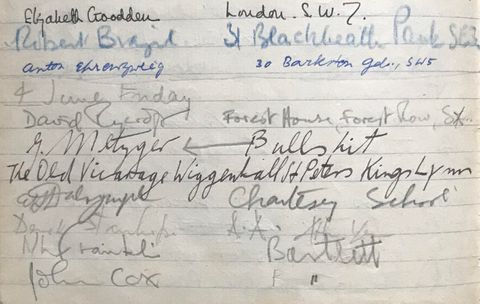 Elizabeth Goodden London. S.W.7.
Robert Brazil 31 Blackheath Park SE3
Anton Ehrenzweig 30 Barkston gdns., SW5
4 June Friday
David Rycroft Forest House, Forest Row, SX
G. Metzger Bullshit
The Old Vicarage Wiggenhall St Peters Kings Lynn
Chertsey School
Derek
Bartlett
John Cox "